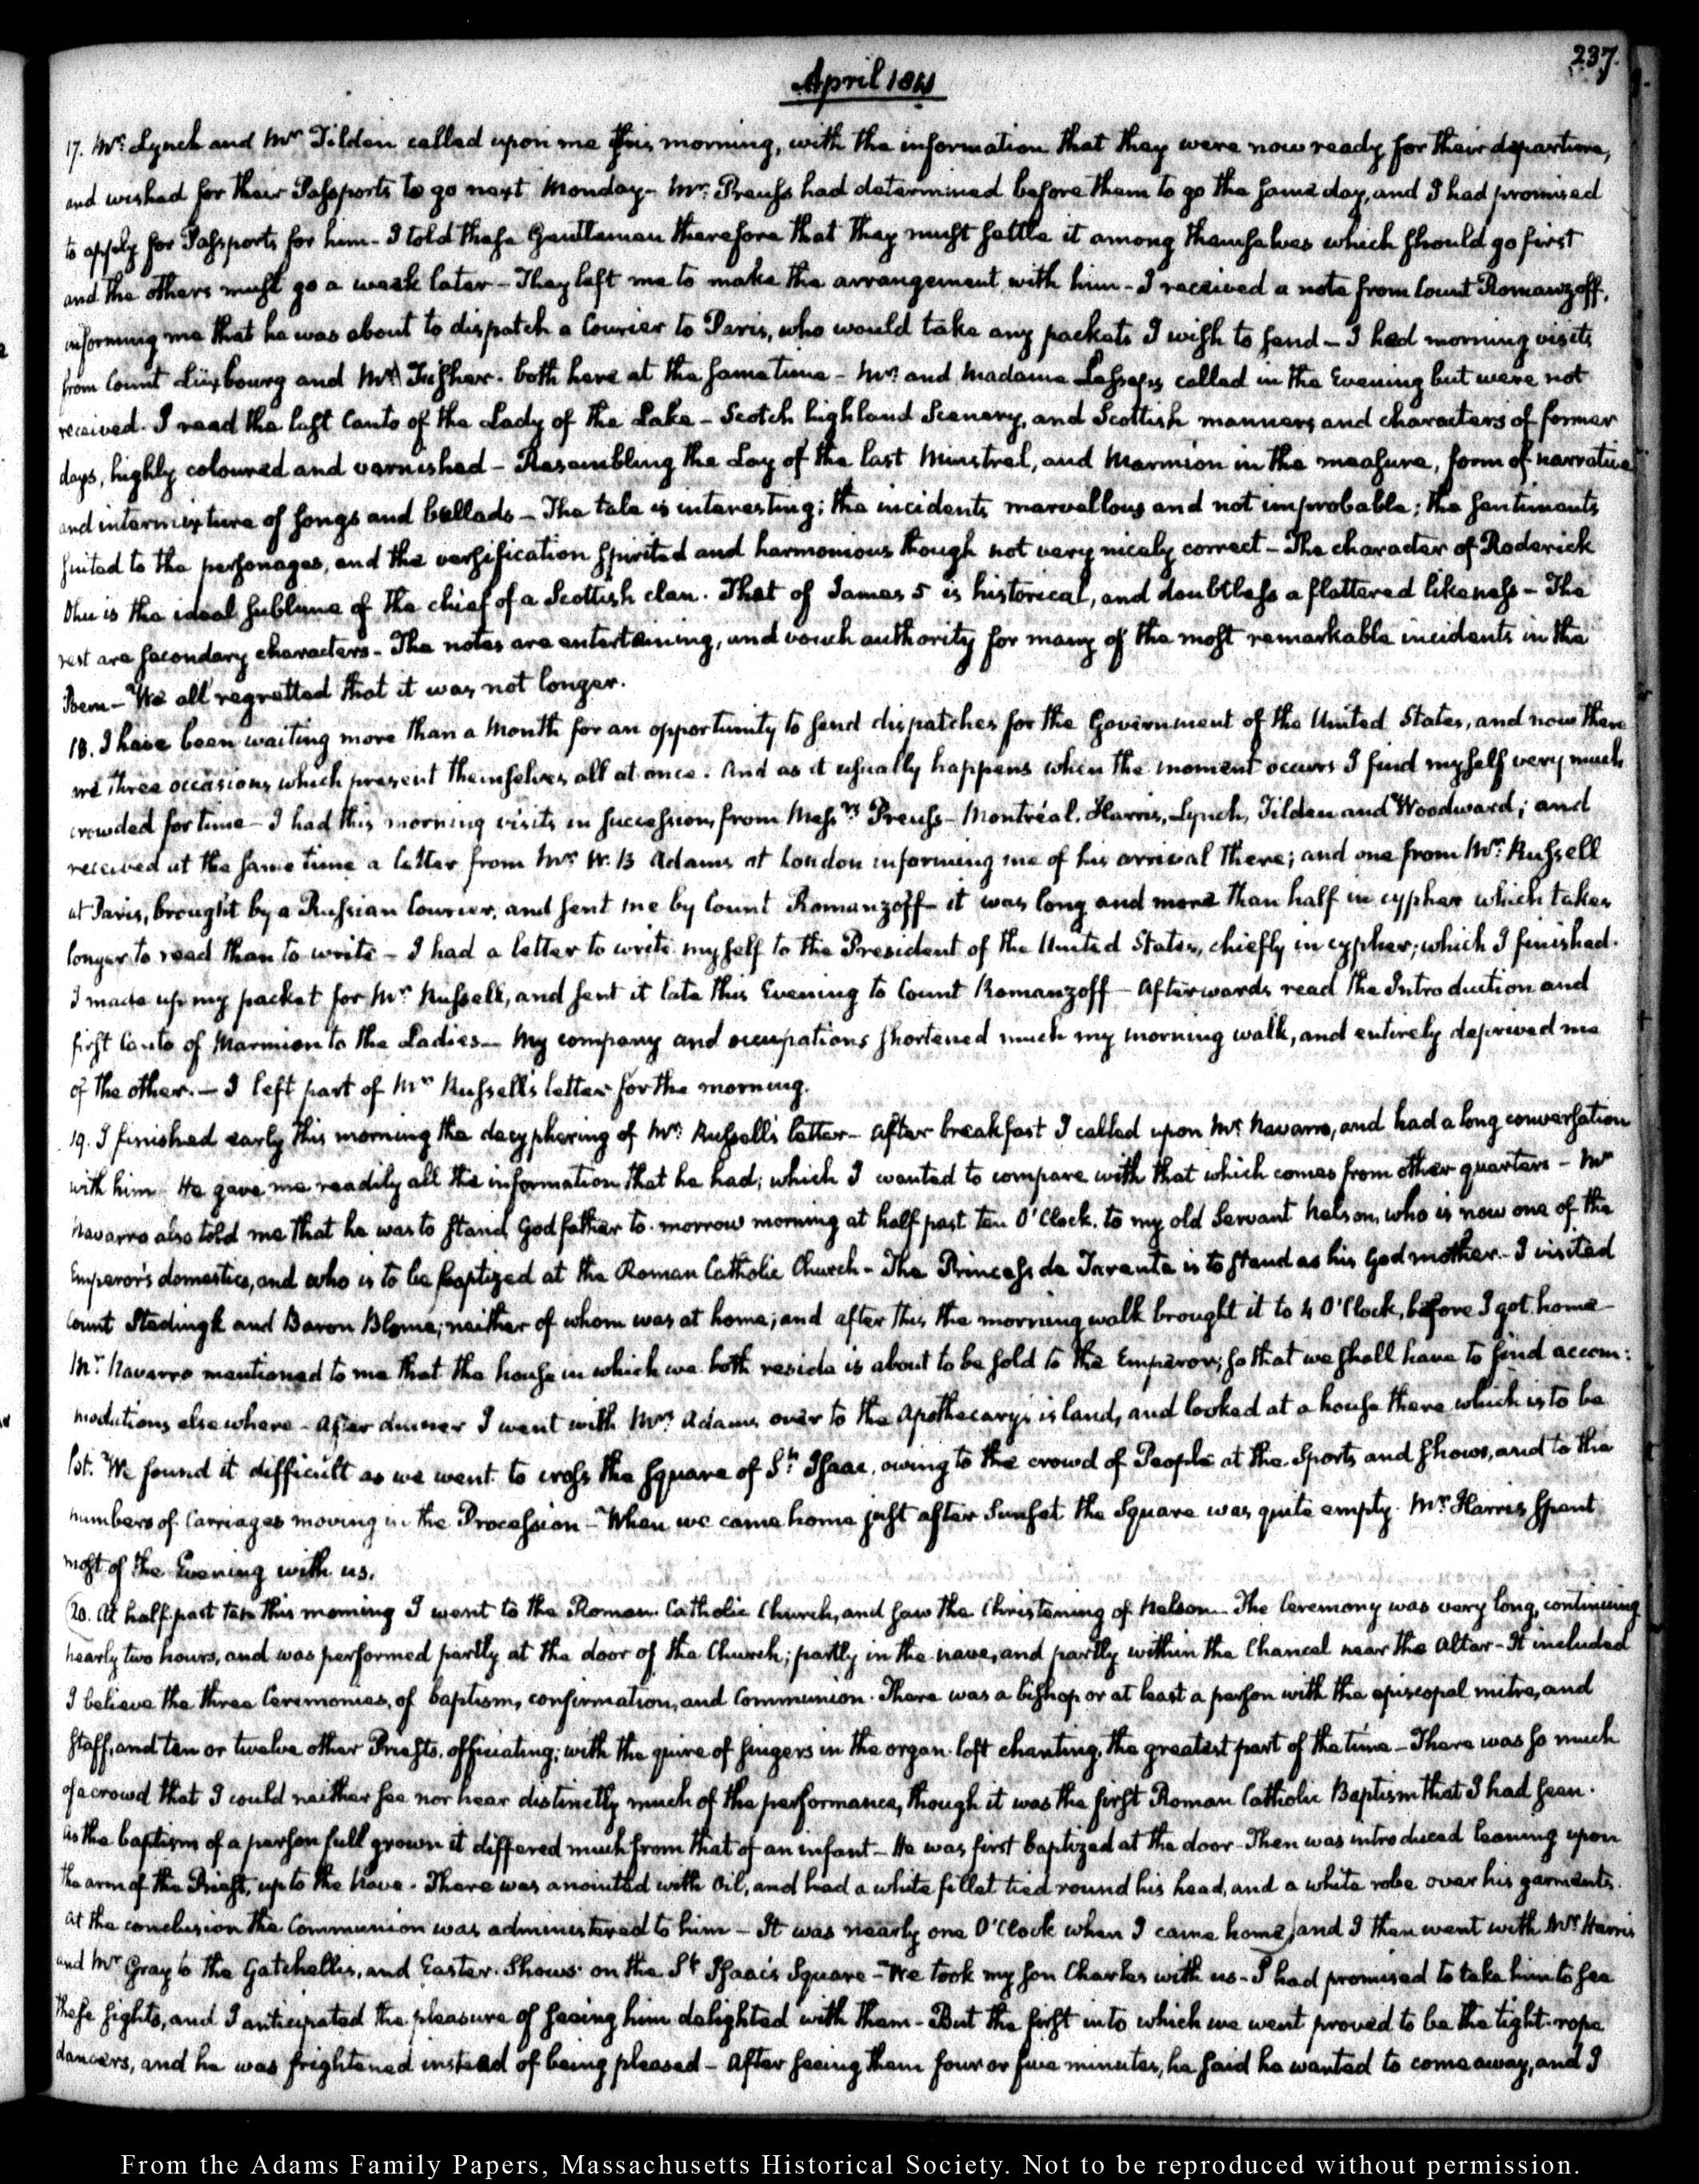 237.
April 1811
17. Mr. Lynch and Mr Tilden called upon me this morning, with the information that they were now ready for their departure,
and wished for their Passports to go next Monday - Mr. Preuss had determined before them to go the same day, and I had promised
to apply for Passports for him - I told these Gentlemen therefore that they must settle it among themselves which should go first
and the others must go a week later - They left me to make the arrangement with him - I received a note from Count Romanzoff,
informing me that he was about to dispatch a Courier to Paris, who would take any packets I wish to send - I had morning visits
from Count Luxbourg and Mr Fisher. both here at the same time - Mr. and Madame Lesseps called in the Evening but were not
received. I read the last Canto of the Lady of the Lake - Scotch highland Scenery, and Scottish manners and characters of former
days, highly coloured and varnished - Resembling the Lay of the last Minstrel, and Marmion in the measure, form of narrative
and intermixture of songs and ballads - The tale is interesting; the incidents marvellous and not improbable; the sentiments
suited to the personages, and the versification spirited and harmonious though not very nicely correct - The character of Roderick
Dhu is the ideal sublime of the chief of a Scottish clan. That of James 5 is historical, and doubtless a flattered likeness - The
rest are secondary characters - The notes are entertaining, and vouch authority for many of the most remarkable incidents in the
Poem - We all regretted that it was not longer.
18. I have been waiting more than a Month for an opportunity to send dispatches for the Government of the United States, and now there
are three occasions which present themselves all at once. And as it usually happens when the moment occurs I find myself very much
crowded for time - I had this morning visits in succession, from Messrs Preuss - Montréal. Harris, Lynch, Tilden and Woodward; and
received at the same time a letter from Mr. W. B Adams at London informing me of his arrival there; and one from Mr. Russell
at Paris, brought by a Russian Courier, and sent me by Count Romanzoff - it was long and more than half in cypher which takes
longer to read than to write - I had a letter to write myself to the President of the United States, chiefly in cypher; which I finished.
I made up my packet for Mr Russell, and sent it late this Evening to Count Romanzoff - Afterwards read the Introduction and
first Canto of Marmion to the Ladies - My company and occupations shortened much my morning walk, and entirely deprived me
of the other. - I left part of Mr Russell's letter for the morning.
19. I finished early this morning the decyphering of Mr. Russell's letter - After breakfast I called upon Mr. Navarro, and had a long conversation
with him He gave me readily all the information that he had; which I wanted to compare with that which comes from other quarters - Mr
Navarro also told me that he was to stand Godfather to-morrow morning at half past ten O'Clock. to my old Servant Nelson, who is now one of the
Emperor's domestics, and who is to be baptized at the Roman Catholic Church - The Princess de Tarente is to stand as his Godmother - I visited
Count Stedingk and Baron Blome; neither of whom was at home; and after this the morning walk brought it to 4 O'Clock, before I got home -
Mr. Navarro mentioned to me that the house in which we both reside is about to be sold to the Emperor; so that we shall have to find accom:
modations elsewhere - After dinner I went with Mrs Adams over to the Apothecary's island, and looked at a house there which is to be
let. We found it difficult as we went to cross the Square of St. Isaac, owing to the crowd of People at the Sports and Shows, and to the
numbers of Carriages moving in the Procession - When we came home just after Sunset the Square was quite empty. Mr. Harris spent
most of the Evening with us.
20. At half-past ten this morning I went to the Roman Catholic Church, and saw the Christening of Nelson - The Ceremony was very long, continuing
nearly two hours, and was performed partly at the door of the Church; partly in the nave, and partly within the Chancel near the Altar - It included
I believe the three Ceremonies, of baptism, confirmation, and Communion. There was a bishop or at least a person with the episcopal mitre, and
staff, and ten or twelve other Priests, officiating; with the quire of singers in the organ-loft chanting, the greatest part of the time - There was so much
of a crowd that I could neither see nor hear distinctly much of the performance, though it was the first Roman Catholic Baptism that I had seen.
As the baptism of a person full grown it differed much from that of an infant - He was first baptized at the door - Then was introduced leaning upon
the arm of the Priest, up to the Nave. There was anointed with Oil, and had a white fillet tied round his head, and a white robe over his garments.
At the conclusion the Communion was administered to him - It was nearly one O'Clock when I came home, and I then went with Mr. Harris
and Mr Gray to the Gatchellis, and Easter-Shows on the St Isaac's Square - We took my son Charles with us - I had promised to take him to see
these sights, and I anticipated the pleasure of seeing him delighted with them - But the first into which we went proved to be the tight-rope
dancers, and he was frightened instead of being pleased - After seeing them four or five minutes, he said he wanted to come away, and I
From the Adams Family Papers, Massachusetts Historical Society. Not to be reproduced without permission.